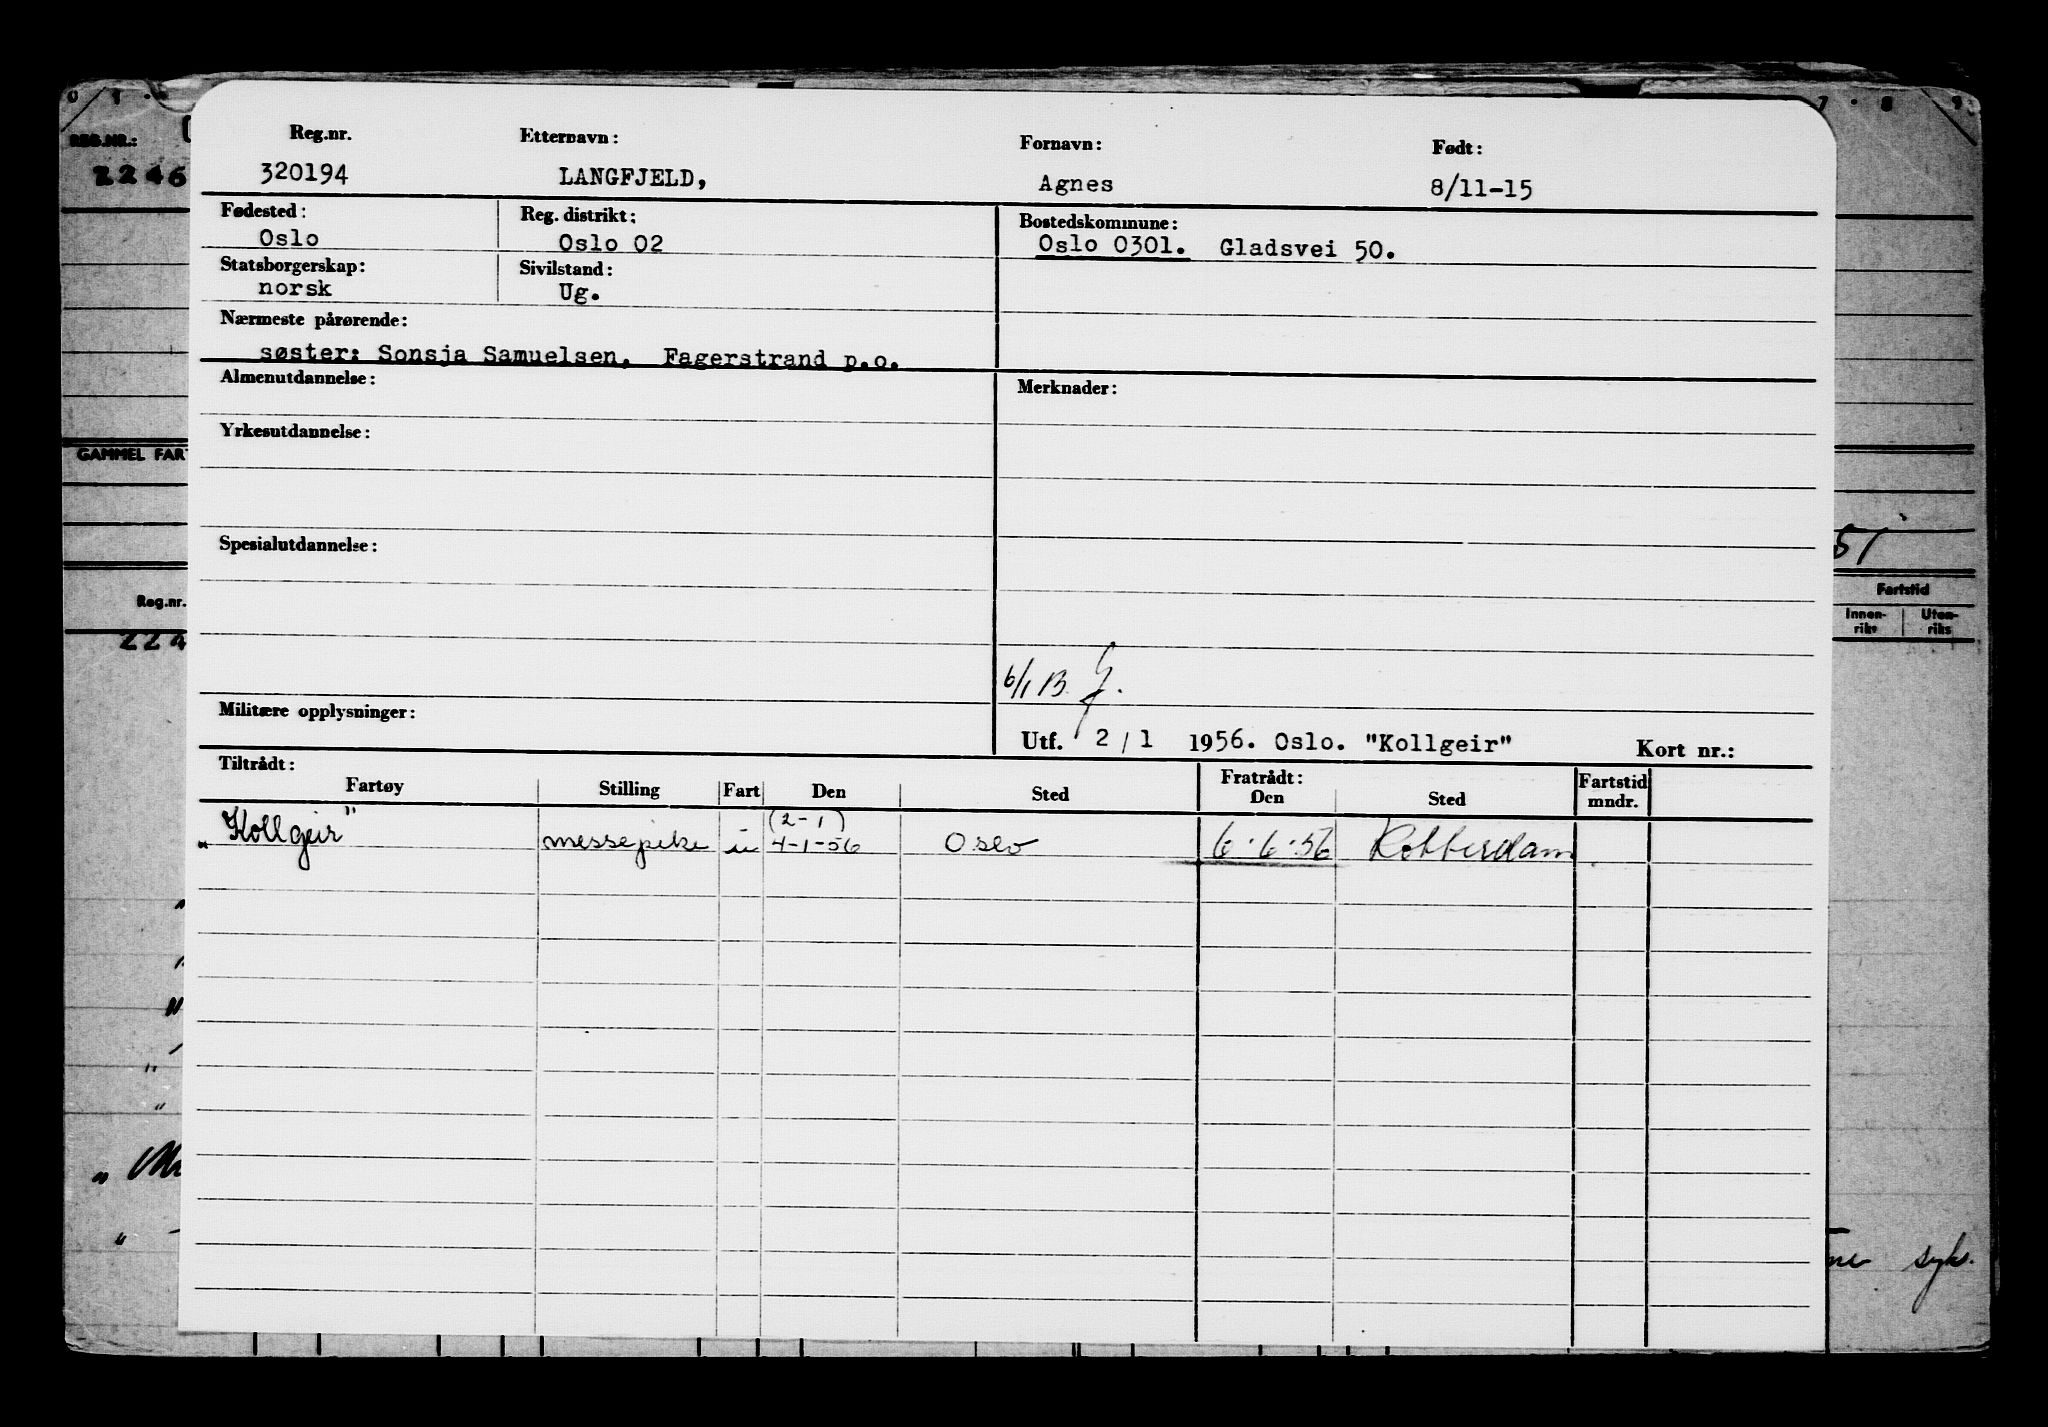 REG.NR.:
2246
Reg.nr. Etternavn: Fornavn: Født:
320194 LANGFJELD, Agnes 8/11-15
Fødested: Reg. distrikt: Bostedskommune:
Oslo Oslo 02 Oslo 0301. Gladsvei 50.
Statsborgerskap: Sivilstand:
norsk Ug.
Nærmeste pårørende:
søster: Sonsja Samuelsen, Fagerstrand p.o.
Almenutdannelse: Merknader:
Yrkesutdannelse:
GAMMEL FAR
Spesialutdannelse:
51
Fartstid
Reg.nr.
Innen-riks Uten-riks
224
6/1 B.
Militære opplysninger:
Utf. 2/1 1956. Oslo. "Kollgeir" Kort nr.:
Tiltrådt: Fratrådt: Fartstid
Fartøy Stilling Fart Den Sted Den Sted mndr.
(2-1)
„Kollgeir" messepike u 4-1-56 Oslo 6.6.56 Rotterdam
ne syk.